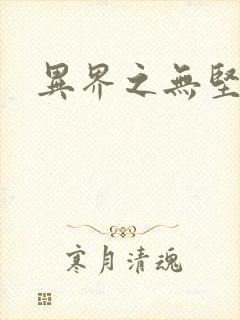 異界之無堅
寒月清魂